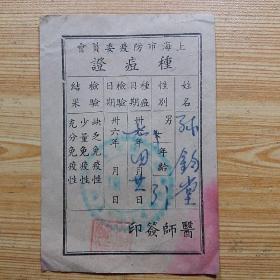 上海市防疫委員會
種痘證
姓名 孫鈞堂
性別 男 年齡
種痘日期 卅七年 四月 日
檢驗日期 卅六年 月 日
檢驗結果 缺乏免疫性 少量免疫性 充分免疫性
醫師簽印